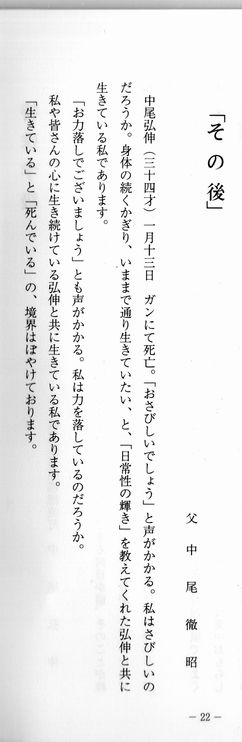 「その後」
父 中尾徹昭
中尾弘伸（三十四才）一月十三日　ガンにて死亡。「おさびしいでしょう」と声がかかる。私はさびしいの
だろうか。身体の続くかぎり、いままで通り生きていたい、と、「日常性の輝き」を教えてくれた弘伸と共に
生きている私であります。
「お力落しでございましょう」とも声がかかる。私は力を落しているのだろうか。
私や皆さんの心に生き続けている弘伸と共に生きている私であります。
「生きている」と「死んでいる」の、境界はぼやけております。
－22－